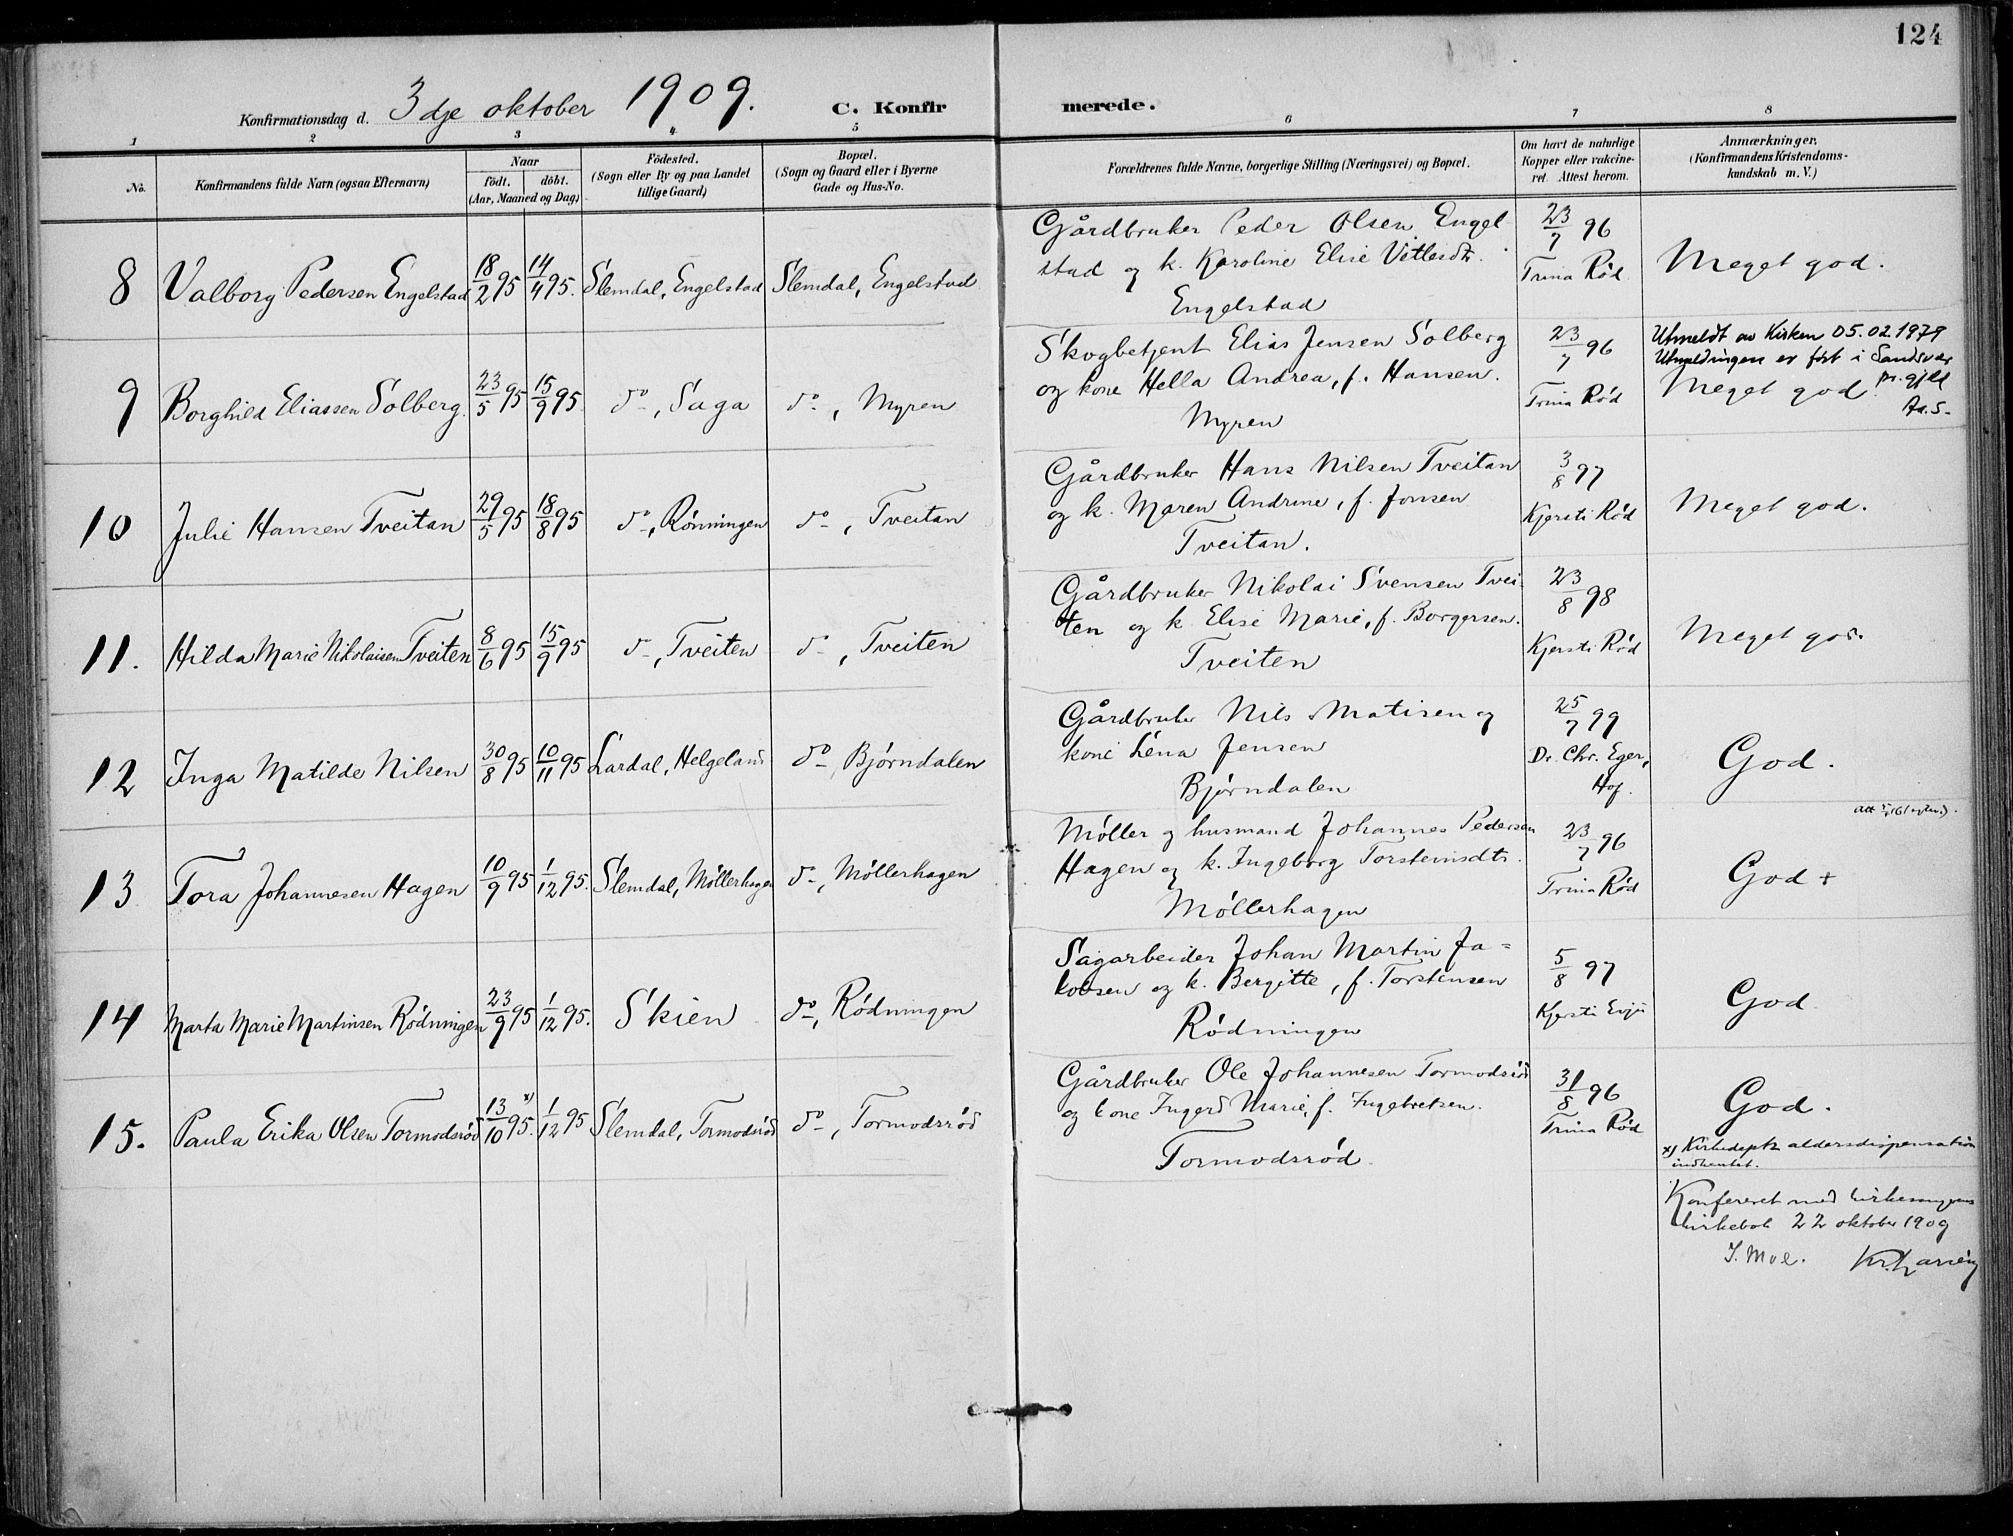 124
Konfirmationsdag d. 3dje oktober 1909. C. Konfirmerede.
1 2 3 4 5 6 7 8
No. Konfirmandens fulde Navn (ogsaa Efternavn) Naar født. døbt. (Aar, Maaned og Dag) Fødested. (Sogn eller By og paa Landet tillige Gaard) Bopæl. (Sogn og Gaard eller i Byerne Gade og Hus-No. Forældrenes fulde Navne, borgerlige Stilling (Næringsvei) og Bopæl. Om havt de naturlige Kopper eller vakcineret. Attest herom. Anmærkninger. (Konfirmandens Kristendomskundskab m. V.)
8 Valborg Pedersen Engelstad 18/2 95 14/4 95. Slemdal, Engelstad Slemdal, Engelstad
Gårdbruker Peder Olsen Engel
stad og k. Karoline Elise Vetlesdtr.
Engelstad
23/7 96
Trina Rød
Meget god.
9 Borghild Eliassen Solberg. 23/5 95 15/9 95. do, Saga do, Myren
Skogbetjent Elias Jensen Solberg
og kone Hella Andrea, f. Hansen.
Myren
23/7 96
Trina Rød
Utmeldt av Kirken 05.02.1979
Utmeldingen er ført i Sandsvær
pr.gjld
Meget god.
Aa.S-
10 Julie Hansen Tveitan 29/5 95 18/8 95 do, Rønningen do, Tveitan
Gårdbruker Hans Nilsen Tveitan
og k. Maren Andrine, f. Jonsen
Tveitan.
3/8 97
Kjersti Rød
Meget god.
11. Hilda Marie Nikolaisen Tveiten 8/6 95 15/9 95 do, Tveiten do, Tveiten
Gårdbruker Nikolai Svensen Tvei-
ten og k. Elise Marie, f. Borgersen.
Tveiten
23/8 98
Kjersti Rød
Meget god.
12 Inga Matilde Nilsen 30/8 95 10/11 95 Lardal, Helgeland do, Bjørndalen
Gårdbruker Nils Matisen og
kone Lena Jensen
Bjørndalen
25/7 99
Dr. Chr. Eger,
Hof.
God.
13 Tora Johannesen Hagen 10/9 95 1/12 95. Slemdal, Møllerhagen do, Møllerhagen
Møller og husmand Johannes Pedersen
Hagen og k. Ingeborg Torsteinsdtr.
Møllerhagen
23/7 96
Trina Rød
God +
14 Marta Marie Martinsen Rødningen 23/9 95 1/12 95. Skien do, Rødningen
Sagarbeider Johan Martin Ja=
kobsen og k. Bergitte, f. Torstensen
Rødningen
5/8 97
Kjersti Evju
God.
15. Paula Erika Olsen Tormodsrød 13/10 95. x) 1/12 95 Slemdal, Tormodsrød do, Tormodsrød
Gårdbruker Ole Johannesen Tormodsrød
og kone Ingerd Marie, f. Ingebretsen.
Tormodsrød
31/8 96
Trina Rød
God.
x) Kirkedepts aldersdispensation
indhentet.
Konfereret med
kirkebok 22 oktober 1909
J. Moe. Kr. Lassen